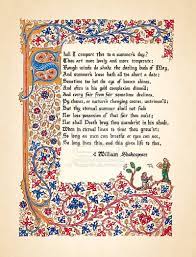 Shall I compare thee to a summer's day?
Thou art more lovely and more temperate:
Rough winds do shake the darling buds of May,
And summer's lease hath all too short a date:
Sometime too hot the eye of heaven shines,
And often is his gold complexion dimm'd;
And every fair from fair sometime declines,
By chance, or nature's changing course, untrimm'd;
But thy eternal summer shall not fade
Nor lose possession of that fair thou ow'st;
Nor shall Death brag thou wander'st in his shade,
When in eternal lines to time thou grow'st:
So long as men can breathe or eyes can see,
So long lives this, and this gives life to thee.
William Shakespeare